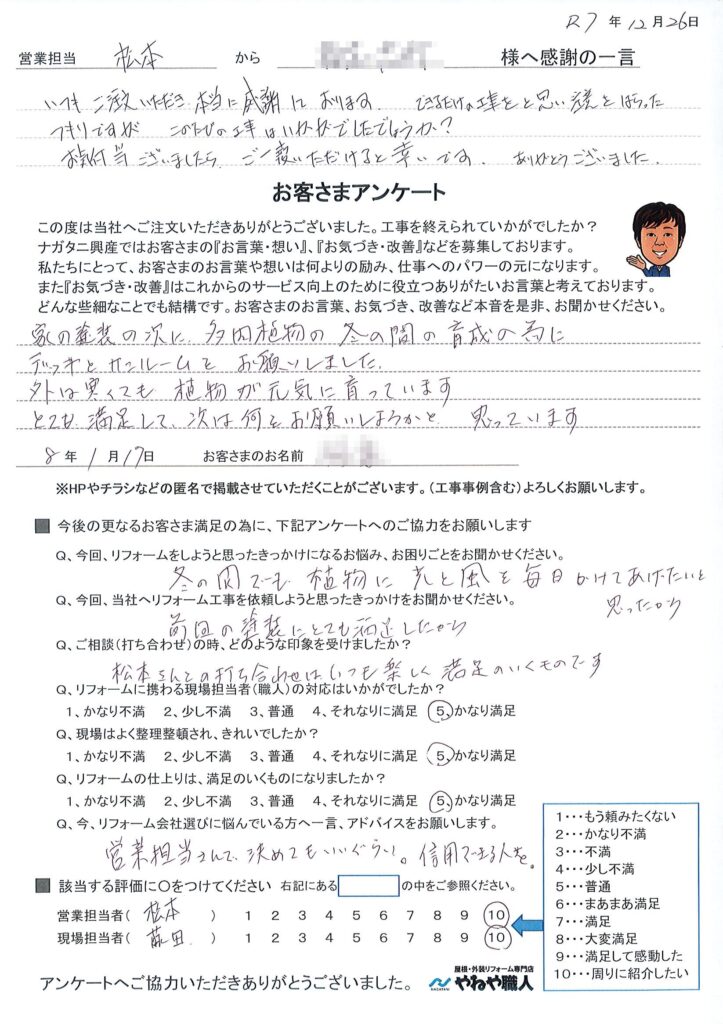 R7 年 12 月 26日
営業担当 松本 から 様へ感謝の一言
いつもご注文いただき本当に感謝しております。できるだけの工事をと思い意見をはらった
つもりですが このたびの工事はいかがでしたでしょうか?
お気付等ございましたら、ご一報いただけると幸いです。ありがとうございました。
お客さまアンケート
この度は当社へご注文いただきありがとうございました。工事を終えられていかがでしたか?
ナガタニ興産ではお客さまの『お言葉・想い』、『お気づき・改善』などを募集しております。
私たちにとって、お客さまのお言葉や想いは何よりの励み、仕事へのパワーの元になります。
また『お気づき・改善』はこれからのサービス向上のために役立つありがたいお言葉と考えております。
どんな些細なことでも結構です。お客さまのお言葉、お気づき、改善など本音を是非、お聞かせください。
家の塗装の次に、多肉植物の冬の間の育成の為に
デッキとサンルームをお願いしました。
外は寒くても植物が元気に育っています
とても満足して、次は何をお願いしようかと 思っています
8 年 1 月 17日 お客さまのお名前
※HPやチラシなどの匿名で掲載させていただくことがございます。(工事事例含む)よろしくお願いします。
■ 今後の更なるお客さま満足の為に、下記アンケートへのご協力をお願いします
Q、今回、リフォームをしようと思ったきっかけになるお悩み、お困りごとをお聞かせください。
冬の間でも植物に光と風を毎日かけてあげたいと
思ったから
Q、今回、当社へリフォーム工事を依頼しようと思ったきっかけをお聞かせください。
前回の塗装にとても満足したから
Q、ご相談(打ち合わせ)の時、どのような印象を受けましたか?
松本さんとの打ち合わせはいつも楽しく満足のいくものです
Q、リフォームに携わる現場担当者(職人)の対応はいかがでしたか?
1、かなり不満 2、少し不満 3、普通 4、それなりに満足 5、かなり満足
Q、現場はよく整理整頓され、きれいでしたか?
1、かなり不満 2、少し不満 3、普通 4、それなりに満足 5、かなり満足
Q、リフォームの仕上りは、満足のいくものになりましたか?
1、かなり不満 2、少し不満 3、普通 4、それなりに満足 5、かなり満足
Q、今、リフォーム会社選びに悩んでいる方へ一言、アドバイスをお願いします。
営業担当さんで、決めてもいいぐらい。信用できる人を。
■ 該当する評価に○をつけてください 右記にある の中をご参照ください。
営業担当者( 松本 ) 1 2 3 4 5 6 7 8 9 10
現場担当者( 藤田 ) 1 2 3 4 5 6 7 8 9 10
1・・・もう頼みたくない
2・・・かなり不満
3・・・不満
4・・・少し不満
5・・・普通
6・・・まあまあ満足
7・・・満足
8・・・大変満足
9・・・満足して感動した
10・・・周りに紹介したい
アンケートへご協力いただきありがとうございました。
屋根・外装リフォーム専門店
NAGATANI やねや職人